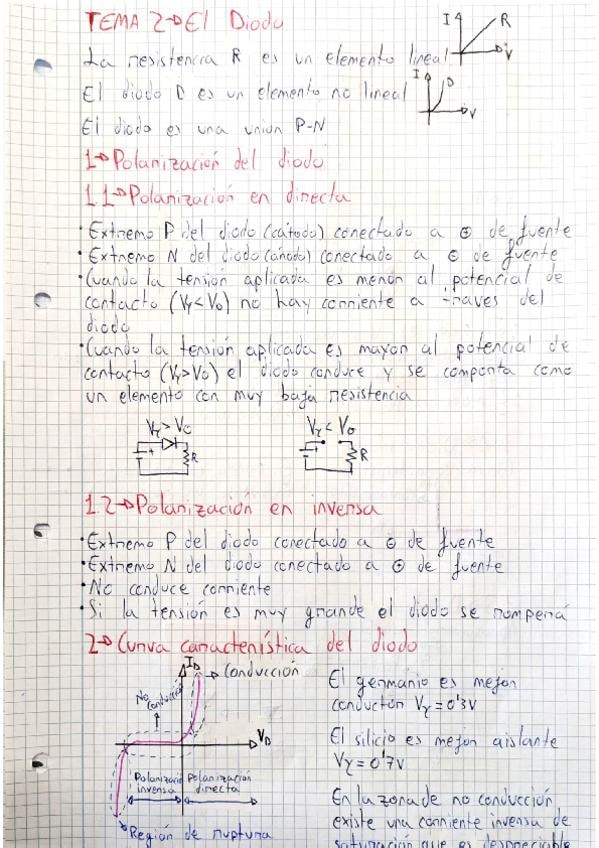 TEMA 2→El Diodo
I
R
V
La resistencia R es un elemento lineal
I
D
V
El diodo D es un elemento no lineal
El diodo es una union P-N
1→Polarización del diodo
1.1→Polarización en directa
· Extremo P del diodo (cátodo) conectado a ⊕ de fuente
· Extremo N del diodo (ánodo) conectado a ⊖ de fuente
· Cuando la tensión aplicada es menor al potencial de
contacto (Vγ<V0) no hay corriente a traves del
diodo
· Cuando la tensión aplicada es mayor al potencial de
contacto (Vγ>V0) el diodo conduce y se comporta como
un elemento con muy baja resistencia
Vγ>V0
+
R
Vγ<V0
+
R
1.2→Polarización en inversa
· Extremo P del diodo conectado a ⊖ de fuente
· Extremo N del diodo conectado a ⊕ de fuente
· No conduce corriente
· Si la tensión es muy grande el diodo se romperá
2→Curva característica del diodo
ID
→Conducción
No
Conducción
VD
Polarización
inversa
Polarización
directa
Región de ruptura
El germanio es mejor
conductor Vγ=0'3V
El silicio es mejor aislante
Vγ=0'7V
En la zona de no conducción
existe una corriente inversa de
saturación que es despreciable